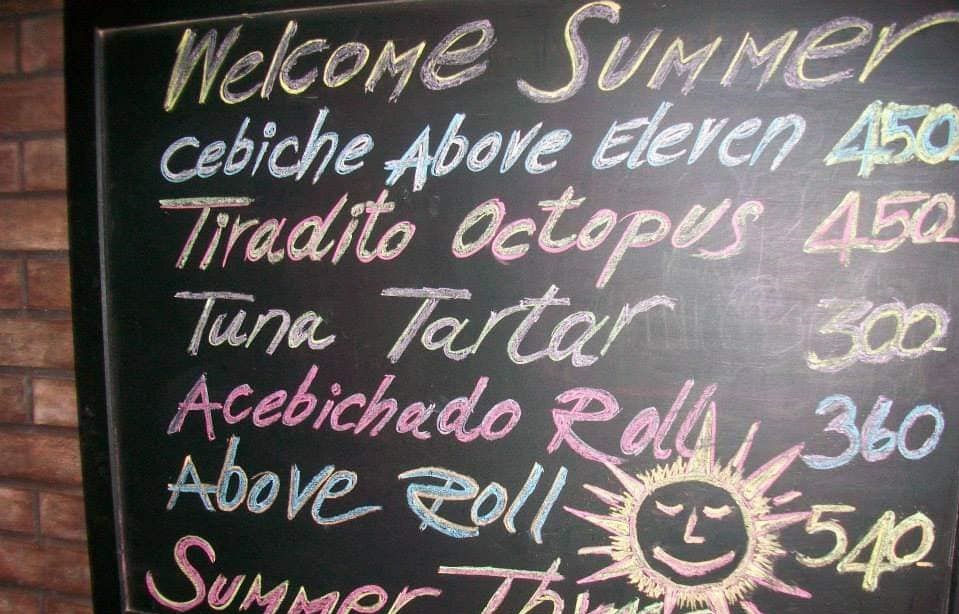 Welcome Summer
Cebiche Above Eleven 450
Tiradito Octopus 450
Tuna Tartar 300
Acebichado Roll 360
Above Roll 540
Summer